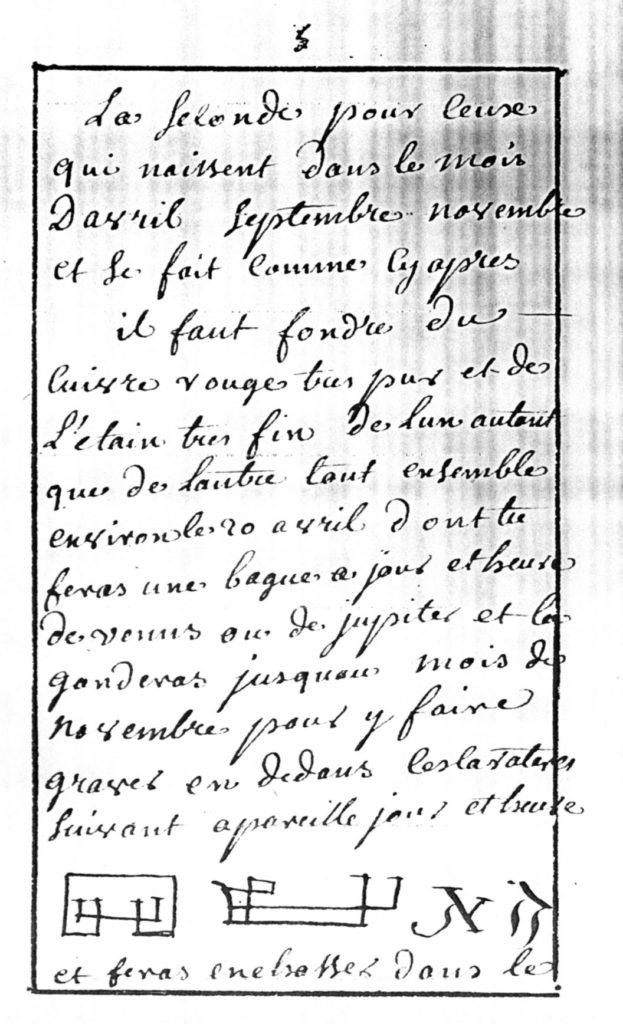 5
La seconde pour ceux
qui naissent dans le mois
Davril septembre novembre
et se fait comme cy apres
il faut fondre du
cuivre rouge tres pur et de
L'etain tres fin de lun autant
que de lautre tout ensemble
environ le 20 avril dont tu
feras une bague a jour et heure
de venus ou de jupiter et la
garderas jusquau mois de
novembre pour y faire
graver en dedans les carateres
suivant a pareille jour et heure
et feras enchasser dans le